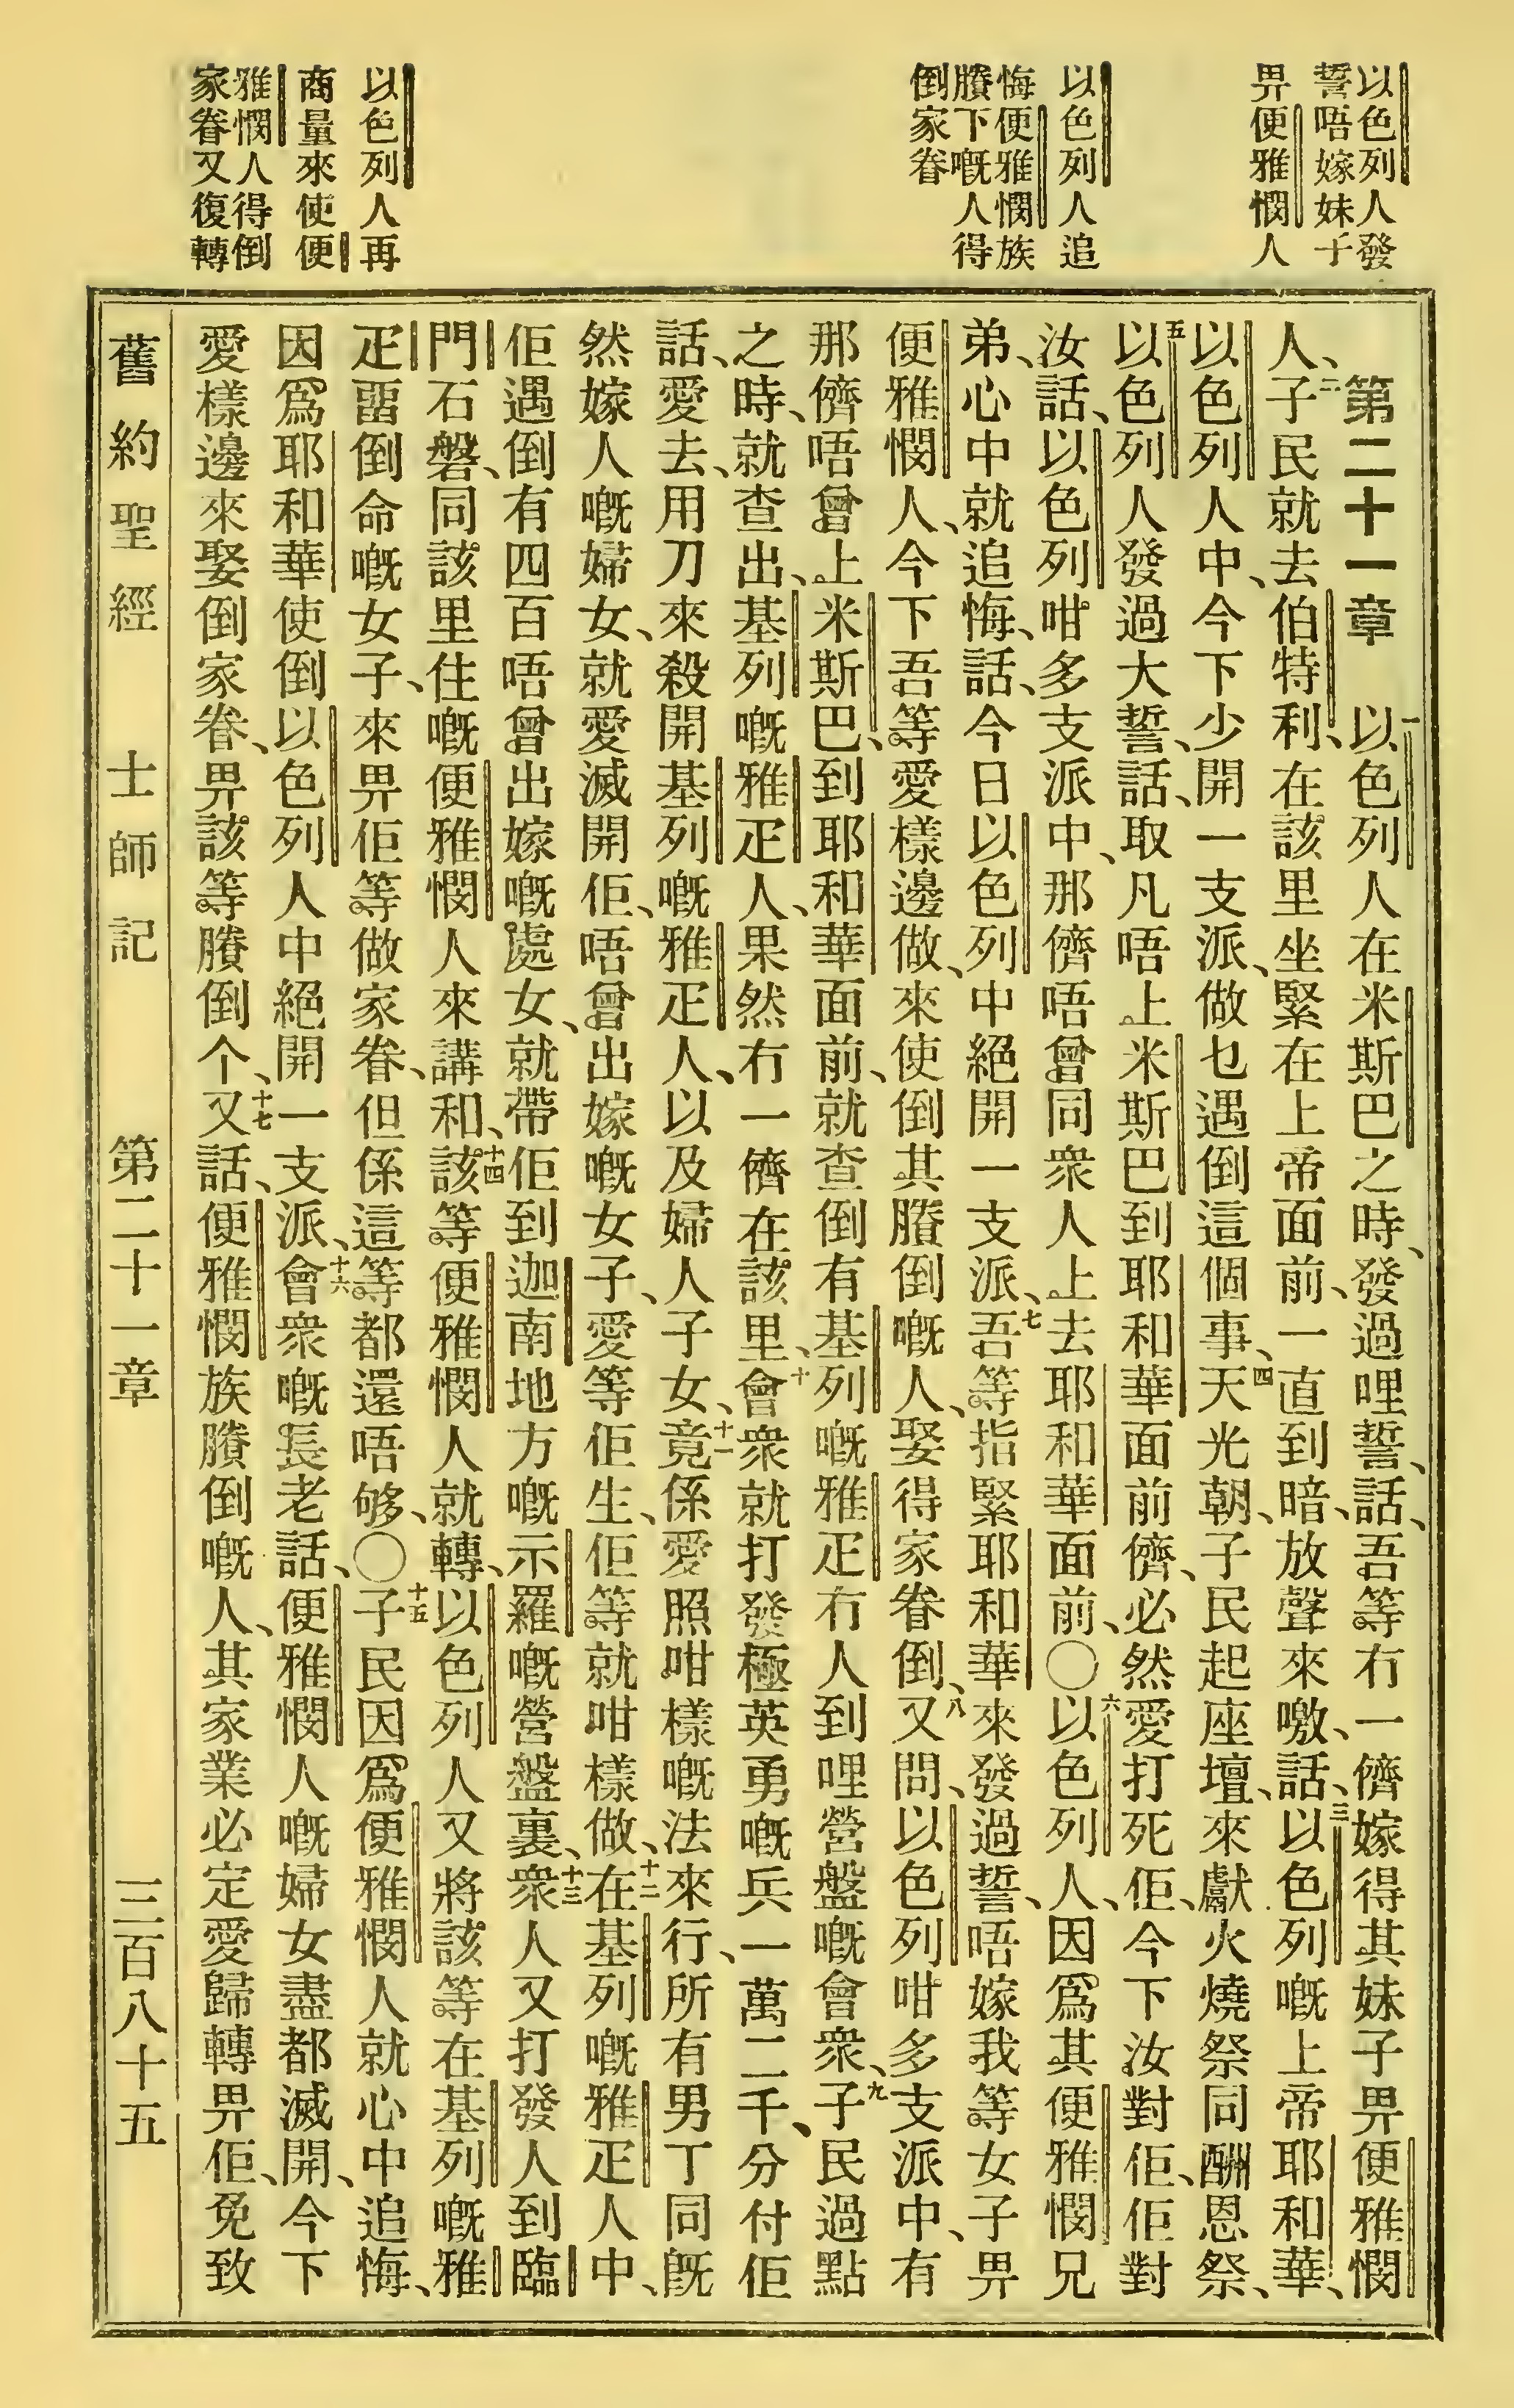 以色列人發
誓唔嫁妹子
畀便雅憫人
以色列人追
悔便雅憫族
賸下嘅人得
倒家眷
以色列人再
商量來使便
雅憫人得倒
家眷又復轉
第二十一章　一以色列人在米斯巴之時、發過哩誓、話、吾等冇一儕嫁得其妹子畀便雅憫
人、二子民就去伯特利、在該里坐緊在上帝面前、一直到暗、放聲來噭、話、三以色列嘅上帝耶和華、
以色列人中、今下少開一支派、做乜遇倒這個事、四天光朝、子民起座壇、來獻火燒祭同酬恩祭、
五以色列人發過大誓、話、取凡唔上米斯巴到耶和華面前儕、必然愛打死佢、今下汝對佢、佢對
汝話、以色列咁多支派中、那儕唔曾同衆人上去耶和華面前、〇六以色列人、因爲其便雅憫兄
弟、心中就追悔、話、今日以色列中絕開一支派、七吾等指緊耶和華來發過誓、唔嫁我等女子畀
便雅憫人、今下吾等愛樣邊做、來使倒其賸倒嘅人、娶得家眷倒、八又問、以色列咁多支派中、有
那儕唔曾上米斯巴、到耶和華面前、就查倒有基列嘅雅疋冇人到哩營盤嘅會衆、九子民過點
之時、就查出、基列嘅雅疋人、果然冇一儕在該里、十會衆就打發極英勇嘅兵一萬二千、分付佢
話、愛去、用刀來殺開基列嘅雅疋人、以及婦人子女、十一竟係愛照咁樣嘅法來行、所有男丁同既
然嫁人嘅婦女、就愛滅開佢、唔曾出嫁嘅女子、愛等佢生、佢等就咁樣做、十二在基列嘅雅疋人中、
佢遇倒有四百唔曾出嫁嘅處女、就帶佢到迦南地方嘅示羅嘅營盤裏、十三衆人又打發人到臨
門石磐、同該里住嘅便雅憫人來講和、十四該等便雅憫人就轉、以色列人又將該等在基列嘅雅
疋畱倒命嘅女子、來畀佢等做家眷、但係這等都還唔够、〇十五子民因爲便雅憫人就心中追悔、
因爲耶和華使倒以色列人中絕開一支派、十六會衆嘅長老話、便雅憫人嘅婦女盡都滅開、今下
愛樣邊來娶倒家眷、畀該等賸倒个、十七又話、便雅憫族賸倒嘅人、其家業必定愛歸轉畀佢、免致
舊約聖經　士師記　第二十一章　三百八十五